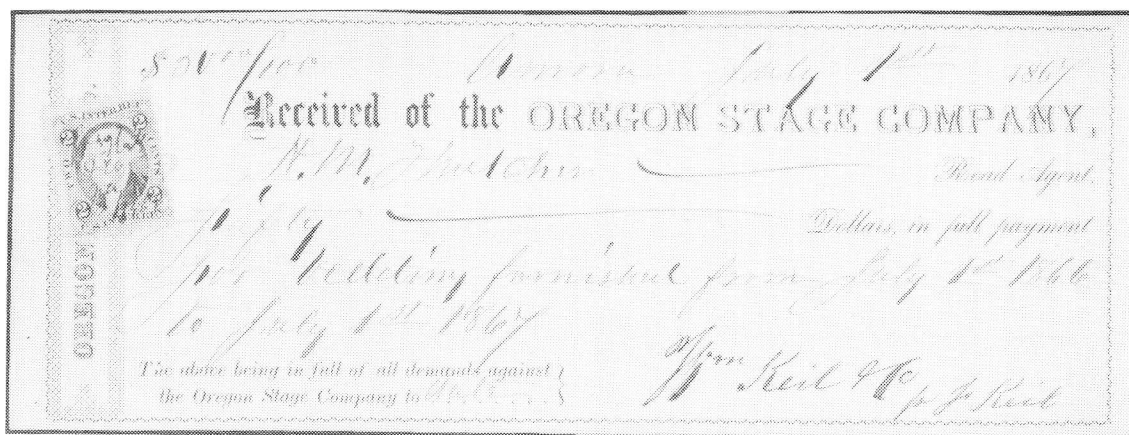 $50 00/100 Aurora July 1st 1867
Received of the OREGON STAGE COMPANY,
H. M. Thatcher Road Agent.
fifty Dollars, in full payment
for bedding furnished from July 1st 1866
to July 1st 1867
The above being in full of all demands against
the Oregon Stage Company to
Wm Keil & Co
pr J. Keil
OREGON